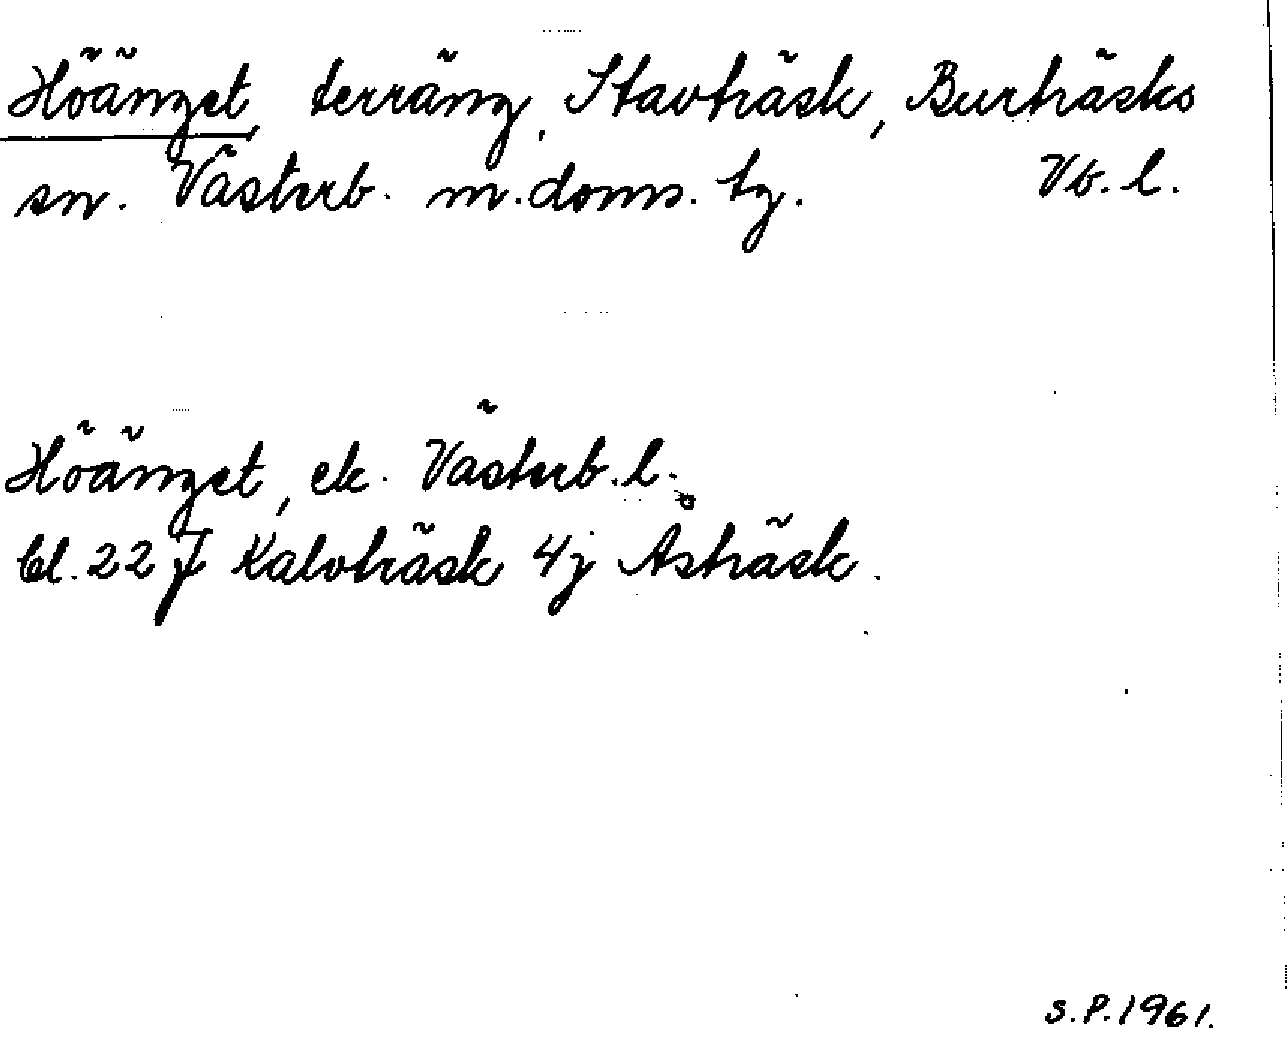 Höänget, terräng, Stavträsk, Burträsks
sn. Västerb. m. doms. tg. Vb. l.
Höänget, ek. Västerb. l.
bl. 22 J Kalvträsk 4j Åsträsk.
S.P. 1961.